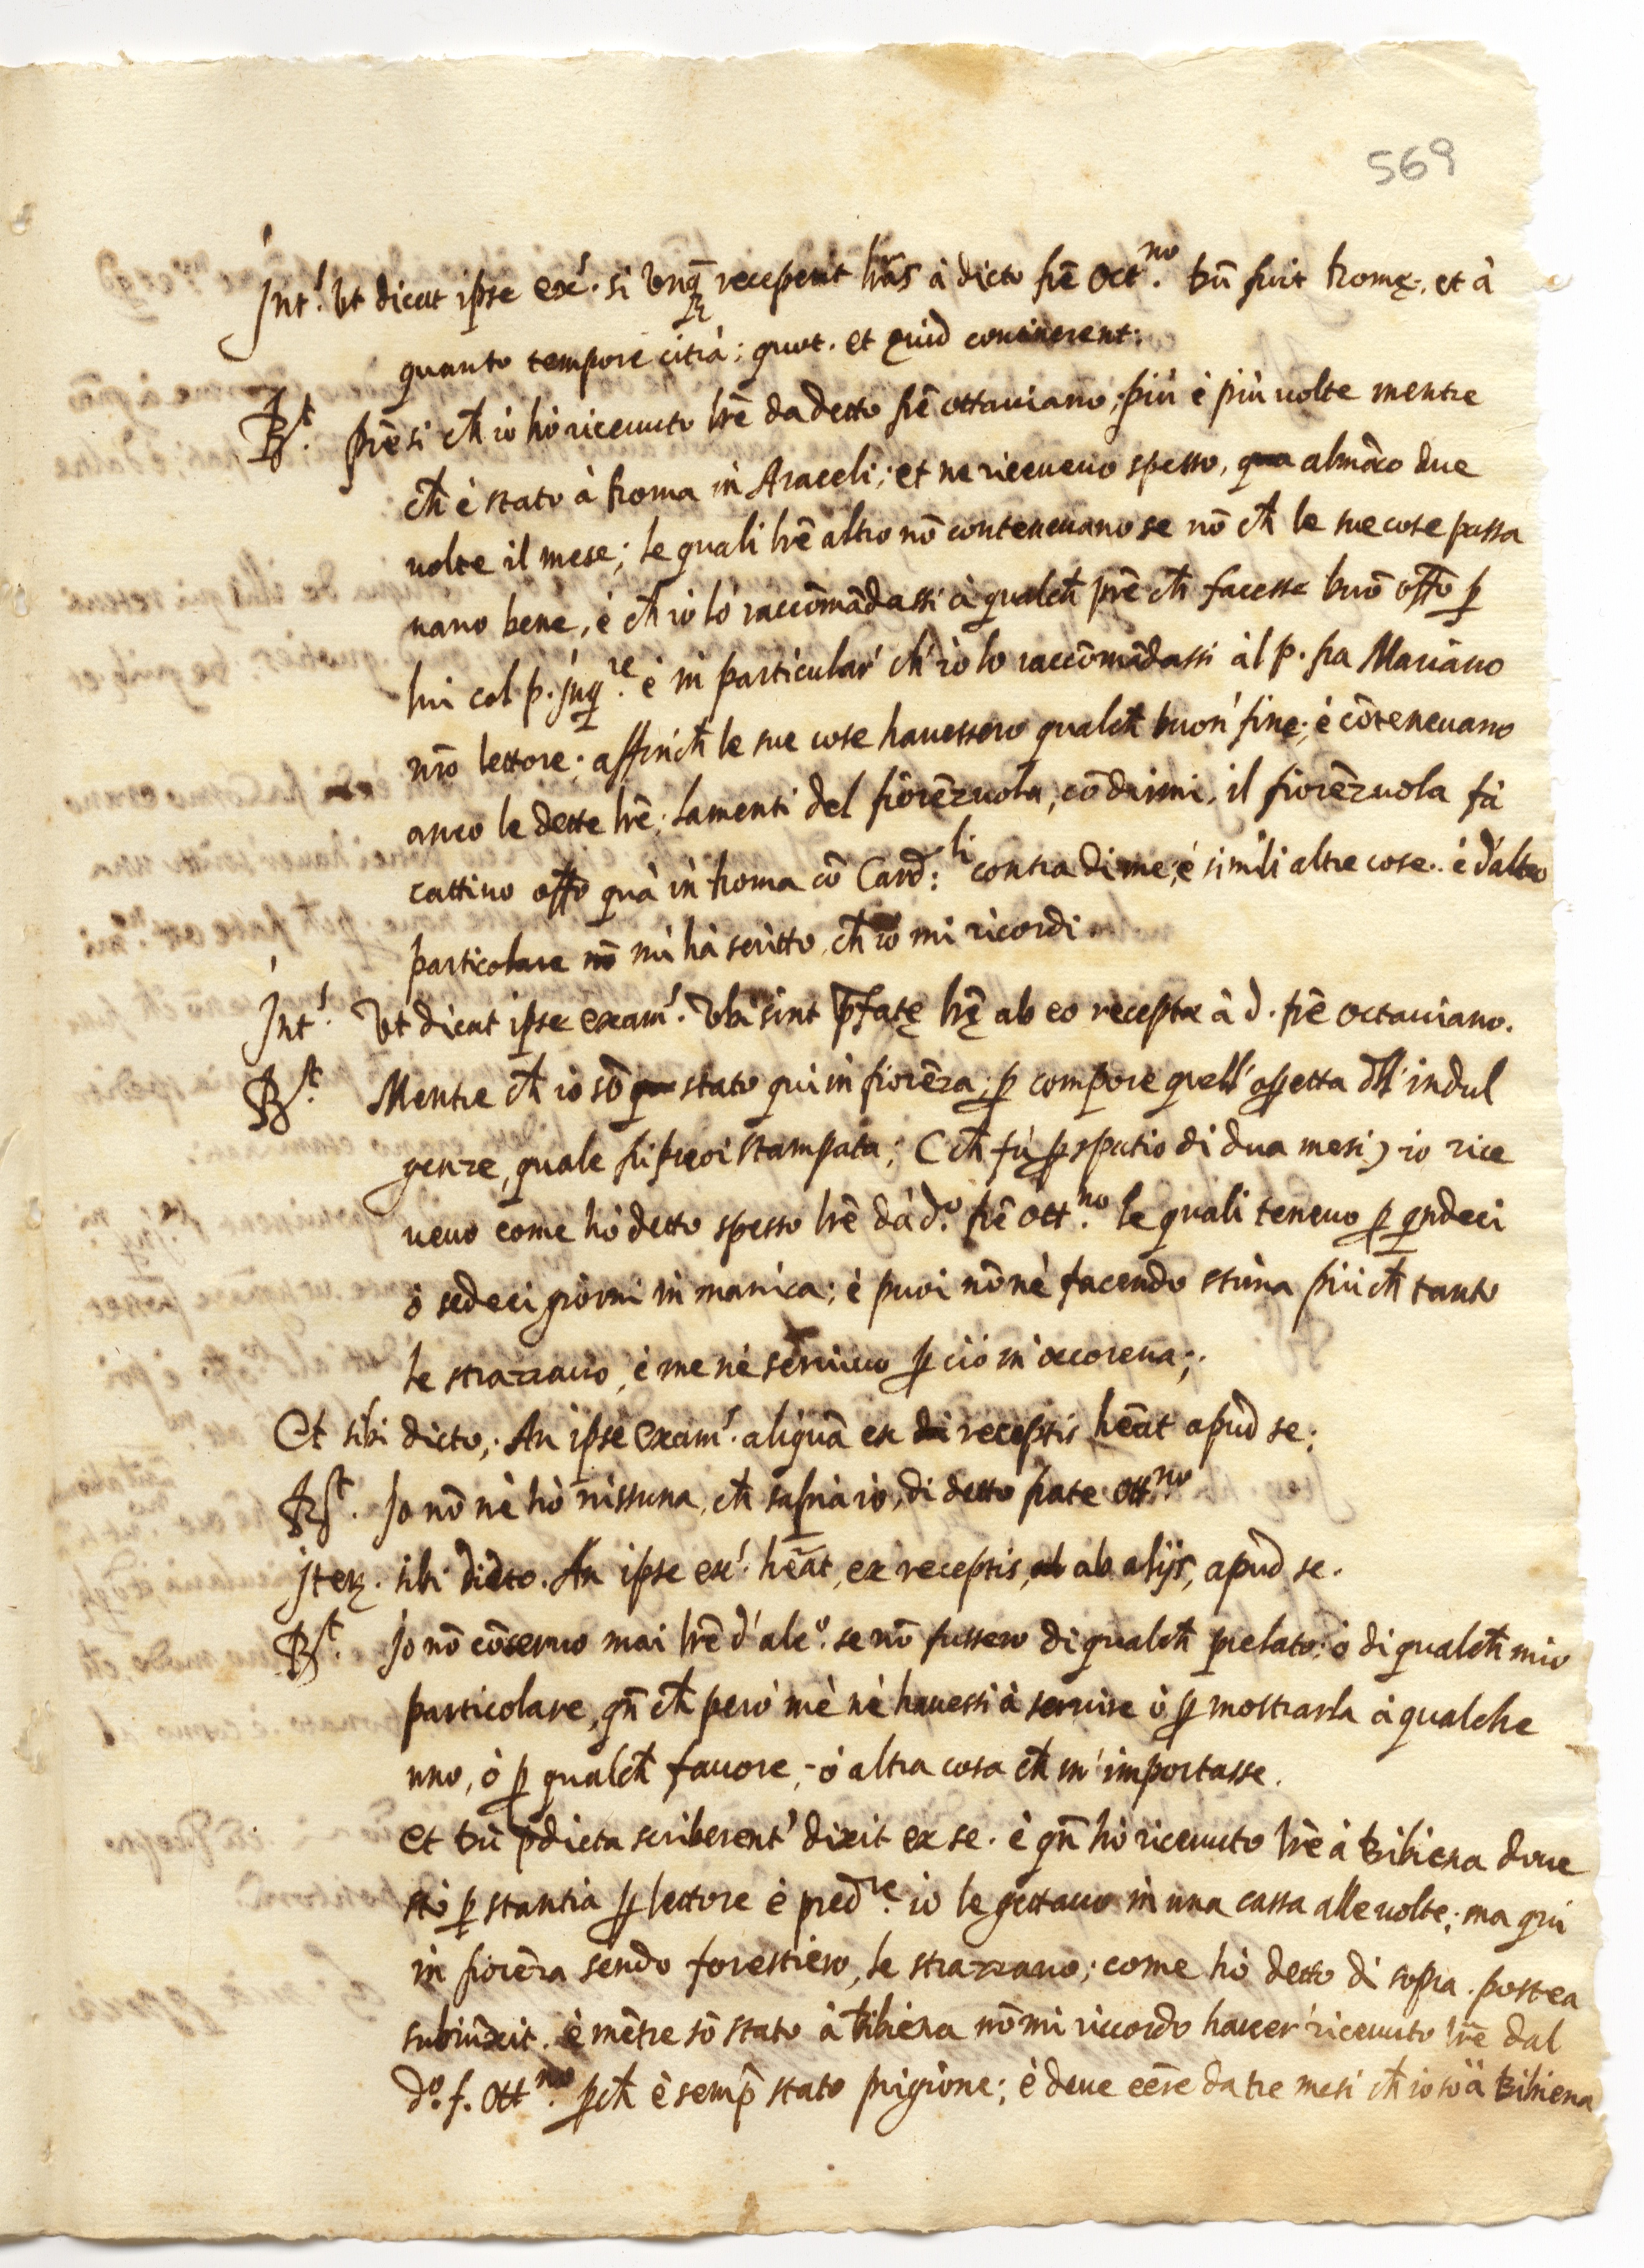 569
Int.' Ut dicat ipse ex.' si unq̃ receperit lr̃as à dicto fr̃e Oct.no dũ fuit Romę, et à
quanto tempore citrà; quot. et quid continerent:
R.t pr̃e si ch̃ io hò riceuuto lr̃e da detto fr̃e ottauiano; più è più uolte mentre
ch̃ è stato à Roma in Araceli; et ne riceueuo spesso, almãco due
uolte il mese; le quali lr̃e altro nõ conteneuano se nõ ch̃ le sue cose passa
uano bene, è ch̃ io lo raccõmãdassi à qualch̃ pr̃e ch̃ facesse buõ off̃o ꝑ
lui col p. Inq.re è in particular' ch' io lo raccõmãdassi àl p. fra Mariano
nr̃o lettore; affinch̃ le sue cose hauessero qualch̃ buon' fine; è cõteneuano
anco le dette lr̃e; lamenti del fiorẽzuola, cõ dirmi, il fiorẽzuola fà
cattiuo off̃o quà in Roma cõ Card:li contra di me; è simili altre cose. è d'altro
particolare nõ mi hà scritto, ch̃ io mi ricordi.
Int.' Ut dicat ipse exam.' Ubi sint p̃fatę lr̃ę ab eo receptæ à d. fr̃e octauiano.
R.t Mentre ch̃ io sõ stato qui in fiorẽza; ꝑ compore quell' op̃etta dll' indul
genze, quale fù puoi stampata; (ch̃ fù ꝑ spatio di dua mesi) io rice
ueuo come hò detto spesso lr̃e dà d.o fr̃e Ott.no le quali teneuo ꝑ qndeci
ò sedeci giorni in manica; è puoi nõ nè facendo stima più ch̃ tanto
le strazzauo, è me nè seruiuo ꝑ ciò m' occoreua;.
Et sibi dicto; An ipse exam.' aliquã ex receptis hẽat apud se;
R.t Io nõ nè hò nissuna, ch̃ sapia io, di detto frate Ott.no
Iteꝝ. sibi dicto. An ipse ex.' hẽat, ex receptis, ab alijs, apud se.
R.t Io nõ cõseruo mai lr̃e d' alc.o se nõ fussero di qualch̃ prelato: ò di qualch̃ mio
particolare, qñ ch̃ però mè nè hauessi à seruire ò ꝑ mostrarla à qualche
uno, ò ꝑ qualch̃ fauore, ò altra cosa ch̃ m' importasse.
Et dũ p̃dicta scriberent' dixit ex se. è qñ hò riceuuto lr̃e à Bibiena doue
stò ꝑ stantia ꝑ lettore è pred.re io le gettauo in una cassa alle uolte; ma qui
in fiorẽza sendo forestiero, le strazzauo; come hò detto di sopra. postea
subiũxit. è mẽtre sõ stato à Bibiena nõ mi riccordo hauer' riceuuto lr̃e dal
d.o f. Ott.no ꝑch̃ è semp̃ stato prigione; è deue eẽre da tre mesi ch̃ io sõ à Bibiena